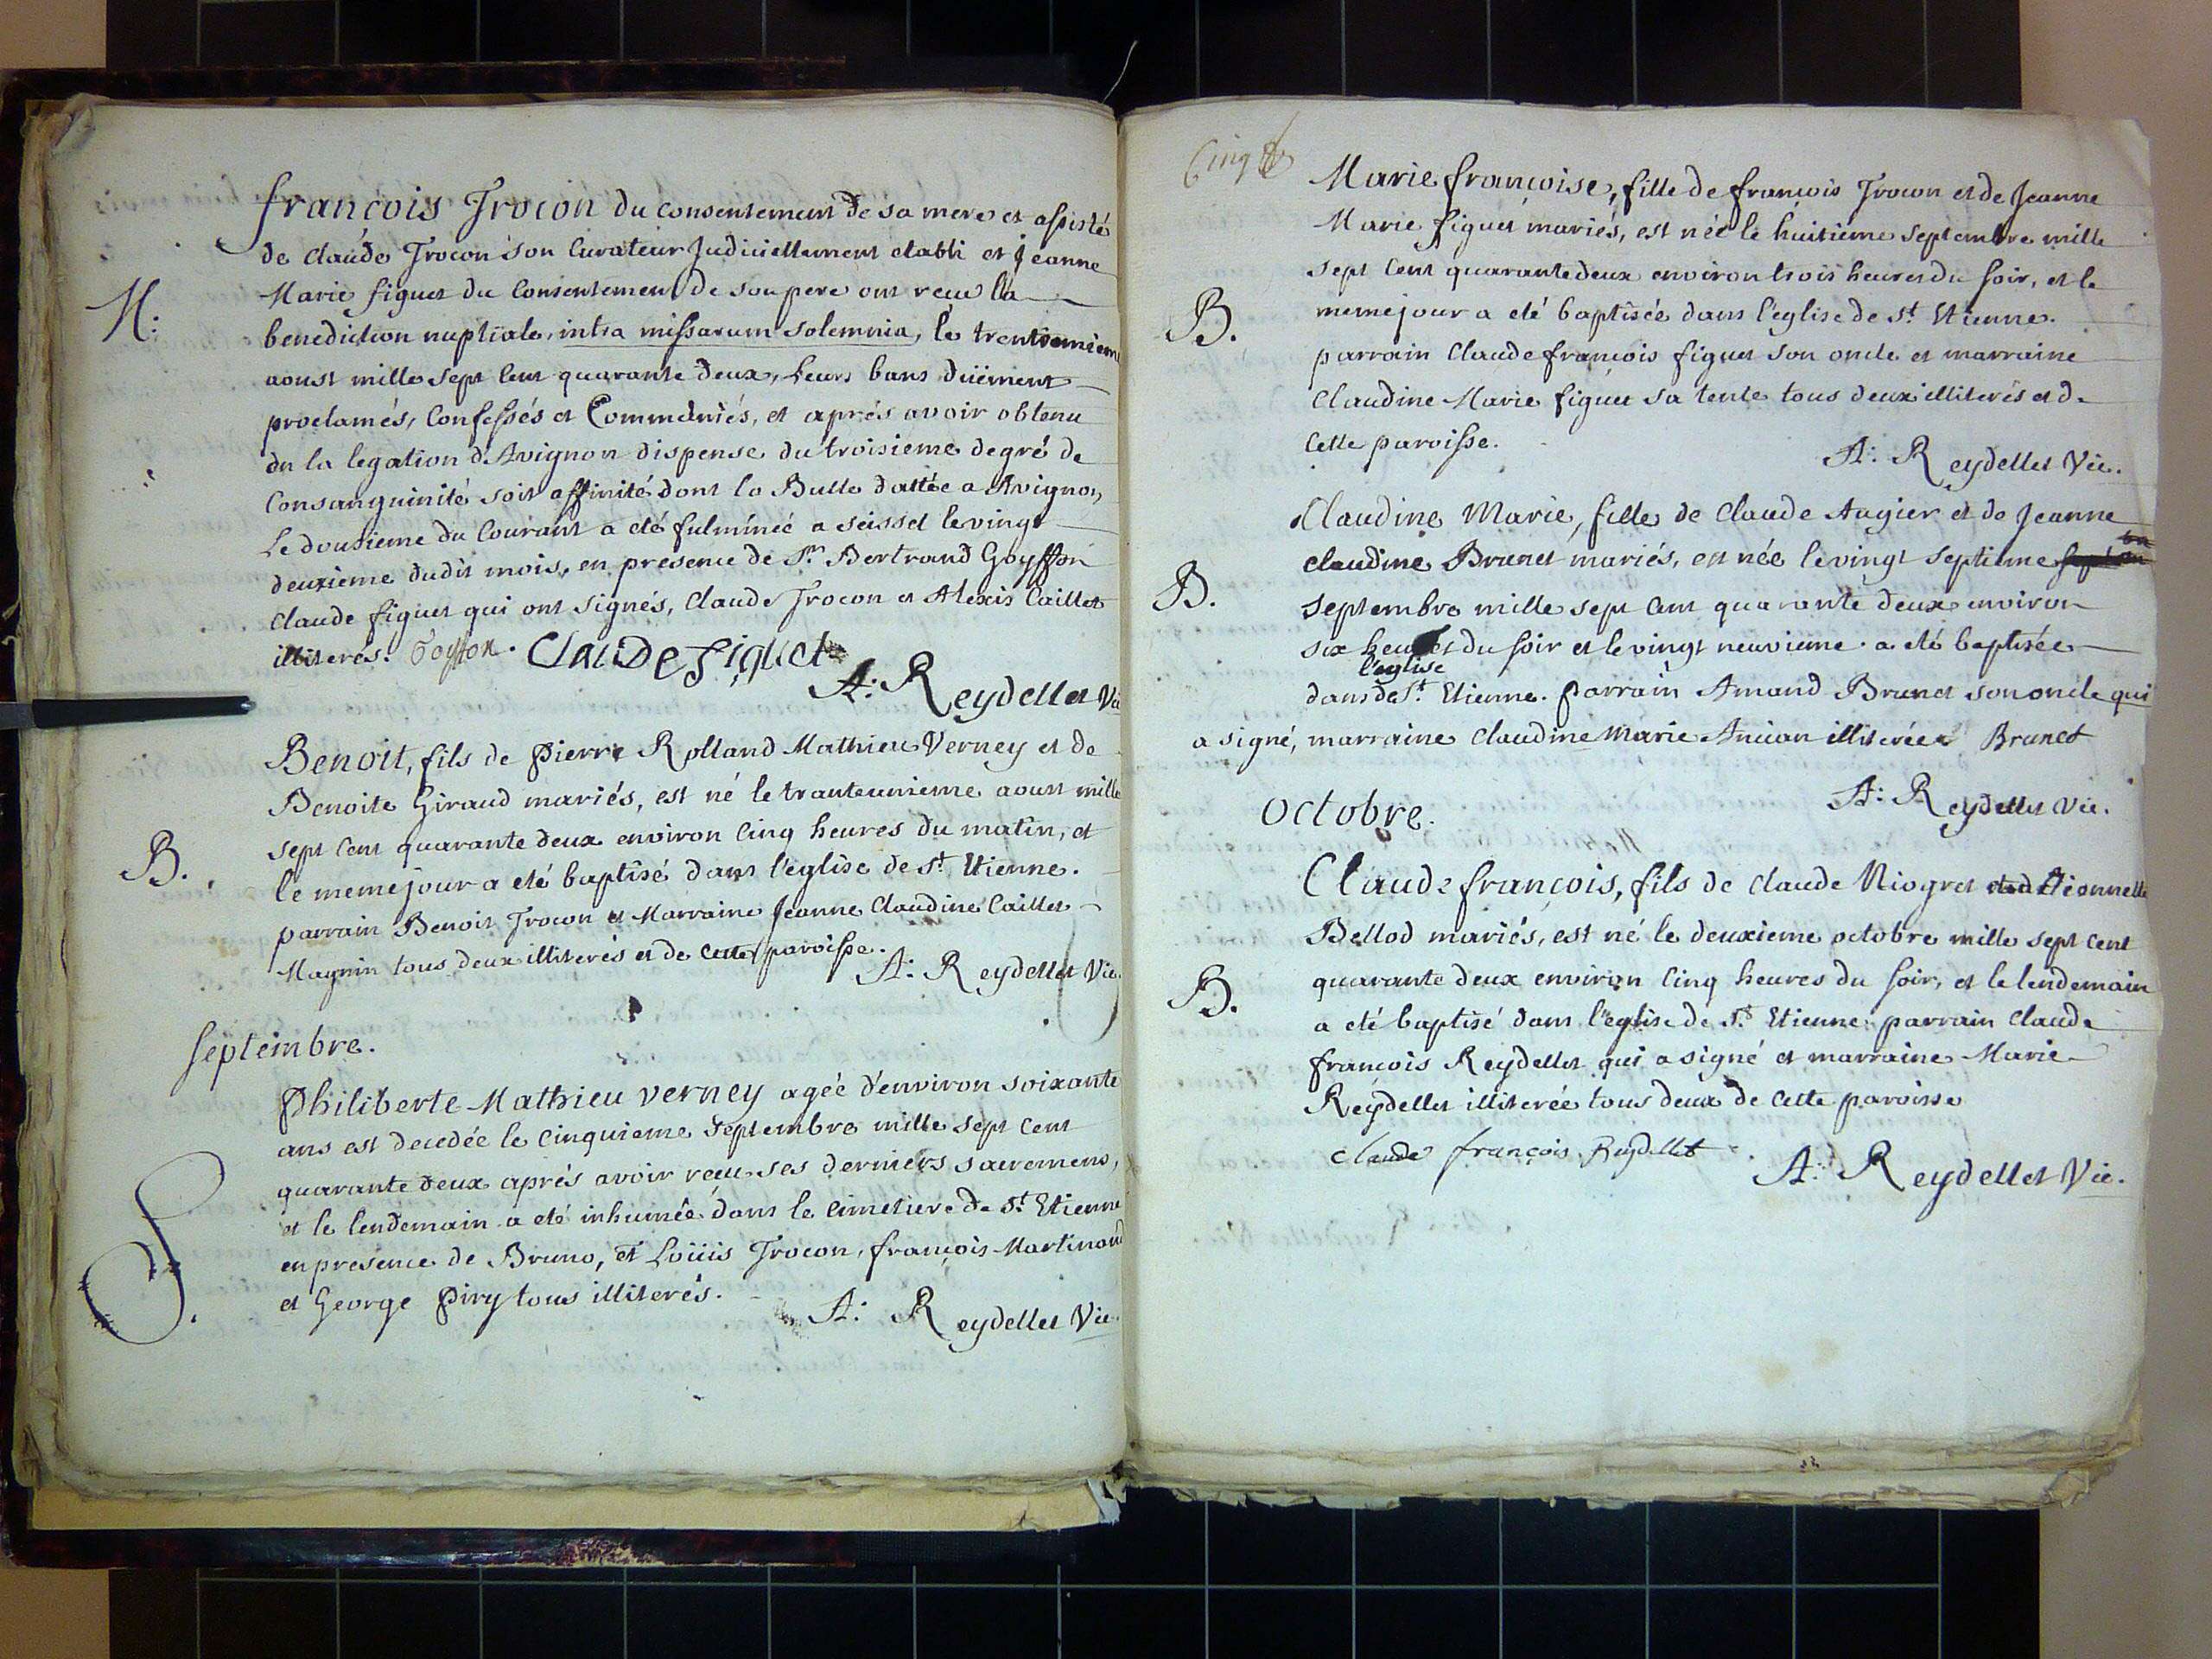 françois Trocon du consentement de sa mere et assisté
de claude Trocon son Curateur Judiciellement etabli et Jeanne
M:
Marie figuet du Consentement de son pere ont reçu la
benediction nuptiale, intra missarum solemnia, le trentiemiem
aoust mille sept cent quarante deux, Leurs bans duëment
proclamés, Confessés et Communiés, et aprés avoir obtenu
de la legation d'Avignon dispense du troisieme degré de
Consanguinité soit affinité dont la Bulle dattée a Avignon,
Le dousieme du Courant a eté fulminée a seissel le vingt
deuxieme dudit mois, en presence de Sr. Bertrand Goyffon
Claude figuet qui ont signés, Claude Trocon et Alexis Caillet
illiterés. Goyffon. Claude Figuet
A: Reydellet Vic
Benoit, fils de Pierre Rolland Mathieu Verney et de
Benoite Giraud mariés, est né le tranteunieme aoust mille
sept cent quarante deux environ cinq heures du matin, et
B.
le meme jour a eté baptisé dans l'église de St. Etienne.
parrain Benoit Trocon et Marraine Jeanne Claudine Caillet
Magnin tous deux illiterés et de cette paroisse.
A: Reydellet Vic.
septembre.
Philiberte Mathieu verney agée d'environ soixante
ans est decedée le cinquieme septembre mille sept cent
quarante deux aprés avoir reçu ses derniers sacremens,
et le lendemain a eté inhumée dans le cimetiere de St. Etienne
S.
en presence de Bruno, et Loüis Trocon, françois Martinand
et George Piry tous illiterés.
A: Reydellet Vic.
Cinq
Marie françoise, fille de françois Trocon et de Jeanne
Marie figuet mariés, est née le huitieme septembre mille
sept cent quarante deux environ trois heures du soir, et le
B.
meme jour a eté baptisée dans l'église de St. Etienne.
parrain Claude françois figuet son oncle et marraine
Claudine Marie figuet sa tente tous deux illiterés et de
Cette paroisse.
A: Reydellet Vic.
Claudine Marie, fille de Claude Augier et de Jeanne
claudine Brunet mariés, est née le vingt septieme
B.
septembre mille sept cent quarante deux environ
six heures du soir et le vingt neuvieme a eté baptisée
l'église
dans de St. Etienne. parrain Amand Brunet son oncle qui
a signé, marraine Claudine Marie Ancian illiterée Brunet
A: Reydellet Vic.
octobre.
Claude françois, fils de Claude Niogret et d'Etiennette
Bellod mariés, est né le deuxieme octobre mille sept cent
B.
quarante deux environ cinq heures du soir, et le lendemain
a eté baptisé dans l'église de St. Etienne. parrain Claude
françois Reydellet qui a signé et marraine Marie
Reydellet illiterée tous deux de cette paroisse
claude françois Reydellet
A: Reydellet Vic.